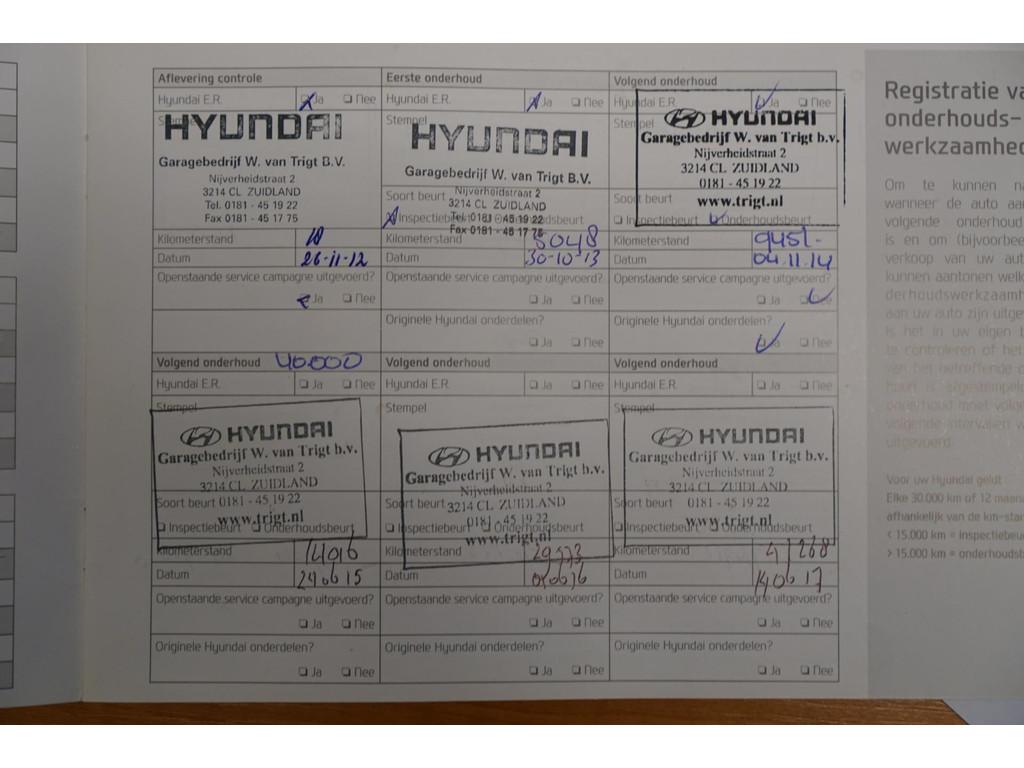 Aflevering controle
Hyundai E.R. Ja Nee
Stempel
HYUNDAI
Garagebedrijf W. van Trigt B.V.
Nijverheidstraat 2
3214 CL ZUIDLAND
Tel. 0181 - 45 19 22
Fax 0181 - 45 17 75
Kilometerstand
Datum 26-11-12
Openstaande service campagne uitgevoerd?
Ja Nee
Eerste onderhoud
Hyundai E.R. Ja Nee
Stempel
HYUNDAI
Garagebedrijf W. van Trigt B.V.
Nijverheidstraat 2
Soort beurt 3214 CL ZUIDLAND
Tel. 0181 - 45 19 22
Inspectiebeurt Onderhoudsbeurt
Fax 0181 - 45 17 75
Kilometerstand 5048
Datum 30-10-13
Openstaande service campagne uitgevoerd?
Ja Nee
Originele Hyundai onderdelen?
Ja Nee
Volgend onderhoud
Hyundai E.R. Ja Nee
Stempel
HYUNDAI
Garagebedrijf W. van Trigt b.v.
Nijverheidstraat 2
3214 CL ZUIDLAND
0181 - 45 19 22
Soort beurt www.trigt.nl
Inspectiebeurt Onderhoudsbeurt
Kilometerstand 9451-
Datum 04.11.14
Openstaande service campagne uitgevoerd?
Ja Nee
Originele Hyundai onderdelen?
Ja Nee
Volgend onderhoud 40.000
Hyundai E.R. Ja Nee
Stempel
HYUNDAI
Garagebedrijf W. van Trigt b.v.
Nijverheidstraat 2
3214 CL ZUIDLAND
Soort beurt 0181 - 45 19 22
www.trigt.nl
Inspectiebeurt Onderhoudsbeurt
Kilometerstand
Datum
Openstaande service campagne uitgevoerd?
Ja Nee
Originele Hyundai onderdelen?
Ja Nee
Volgend onderhoud
Hyundai E.R. Ja Nee
Stempel
HYUNDAI
Garagebedrijf W. van Trigt b.v.
Nijverheidstraat 2
Soort beurt 3214 CL ZUIDLAND
0181 - 45 19 22
Inspectiebeurt Onderhoudsbeurt
www.trigt.nl
Kilometerstand
Datum
Openstaande service campagne uitgevoerd?
Ja Nee
Originele Hyundai onderdelen?
Ja Nee
Volgend onderhoud
Hyundai E.R. Ja Nee
Stempel
HYUNDAI
Garagebedrijf W. van Trigt b.v.
Nijverheidstraat 2
3214 CL ZUIDLAND
Soort beurt 0181 - 45 19 22
www.trigt.nl
Inspectiebeurt Onderhoudsbeurt
Kilometerstand
Datum 14 06 17
Openstaande service campagne uitgevoerd?
Ja Nee
Originele Hyundai onderdelen?
Ja Nee
Registratie va
onderhouds-
werkzaamhed
Om te kunnen na
wanneer de auto aan
volgende onderhoud
is en om (bijvoorbee
verkoop van uw aut
kunnen aantonen welk
derhoudswerkzaamh
aan uw auto zijn uitge
is het in uw eigen b
te controleren of het
van het betreffende
uitgevoerd.
Voor uw Hyundai geldt
Elke 30.000 km of 12 maand
afhankelijk van de km-stan
< 15.000 km = inspectiebeu
> 15.000 km = onderhoudsb